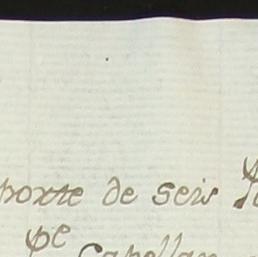 porte de seis
pe Capellan